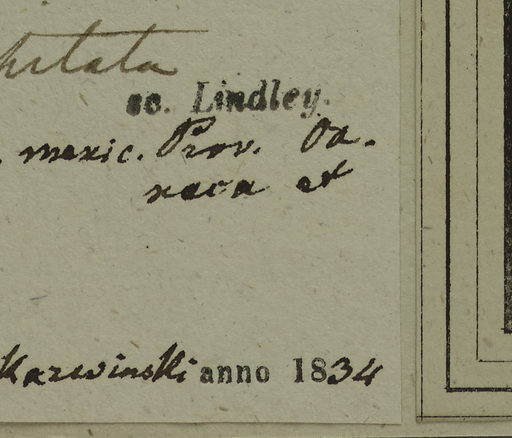 sc. Lindley.
mexic. Prov. Oa-
xaca et
Karwinski anno 1834